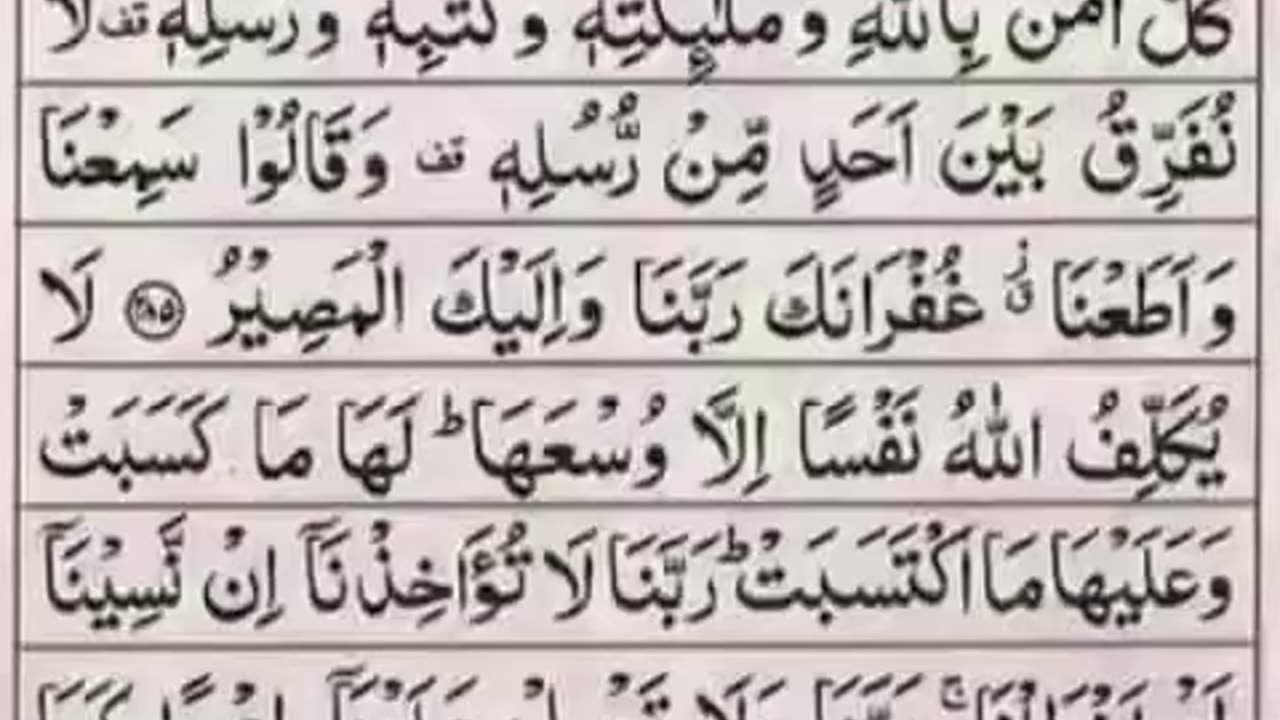 كُلٌّ اٰمَنَ بِاللّٰهِ وَ مَلٰٓئِكَتِهٖ وَ كُتُبِهٖ وَ رُسُلِهٖ قف لَا
نُفَرِّقُ بَيْنَ اَحَدٍ مِّنْ رُّسُلِهٖ قف وَقَالُوْا سَمِعْنَا
وَ اَطَعْنَا ز ق غُفْرَانَكَ رَبَّنَا وَاِلَيْكَ الْمَصِيْرُ ﴿۲۸۵﴾ لَا
يُكَلِّفُ اللّٰهُ نَفْسًا اِلَّا وُسْعَهَا ؕ لَهَا مَا كَسَبَتْ
وَعَلَيْهَا مَا اكْتَسَبَتْ ؕ رَبَّنَا لَا تُؤَاخِذْنَآ اِنْ نَّسِيْنَآ